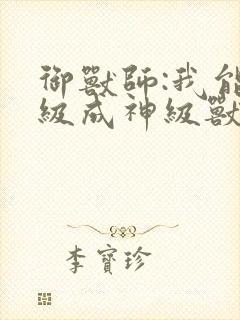 御獸師:我能
級成神級獸
李寶珍